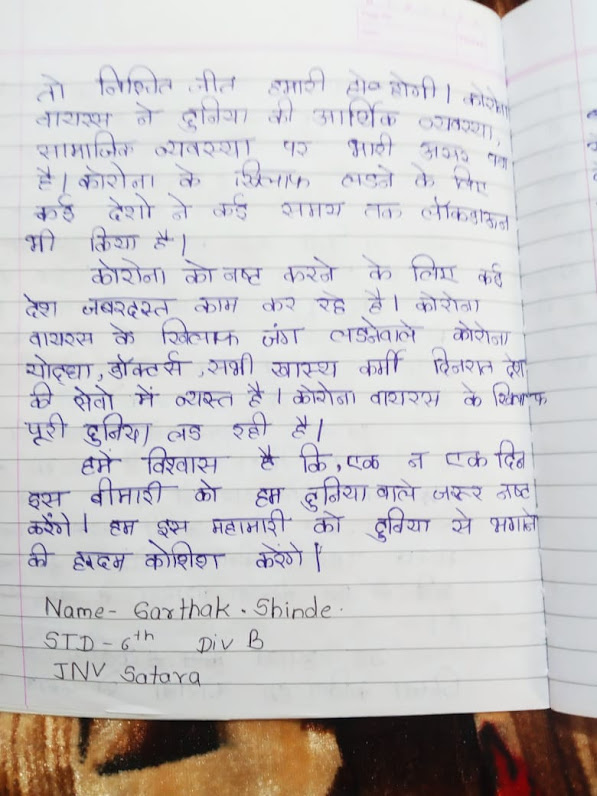 तो निश्चित जीत हमारी होगी। कोरोना
वायरस ने दुनिया की आर्थिक व्यवस्था,
सामाजिक व्यवस्था पर भारी असर
है। कोरोना के खिलाफ लडने के लिए
कई देशो ने कई समय तक लॉकडाऊन
भी किया है।
कोरोना को नष्ट करने के लिए कई
देश जबरदस्त काम कर रहे है। कोरोना
वायरस के खिलाफ जंग लडनेवाले कोरोना
योद्धा, डॉक्टर्स, सभी स्वास्थ्य कर्मी दिनरात देश
की सेवो में व्यस्त है। कोरोना वायरस के खिलाफ
पूरी दुनिया लड रही है।
हमें विश्वास है कि, एक न एक दिन
इस बीमारी को हम दुनिया वाले जरूर नष्ट
करेंगे। हम इस महामारी को दुनिया से भगाने
की हरदम कोशिश करेंगे।
Name- Sarthak. Shinde.
STD - 6th Div B
JNV Satara